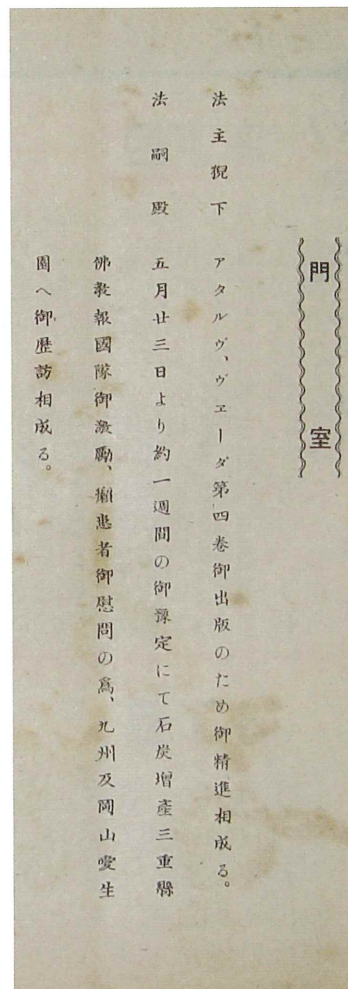 門室
法主猊下　アタルヴ、ヴエーダ第四巻御出版のため御精進相成る。
法嗣殿　五月廿三日より約一週間の御豫定にて石炭增產三重縣
佛教報國隊御激勵、癩患者御慰問の爲、九州及岡山愛生
園へ御歷訪相成る。